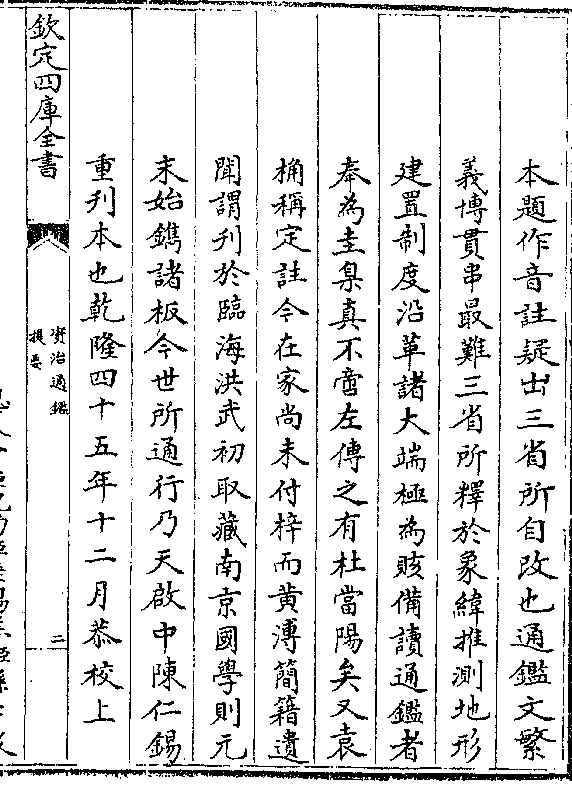 本題作音註疑出三省所自改也通鑑文繁
義博貫串最難三省所釋於象緯推測地形
建置制度沿革諸大端極為賅備讀通鑑者
奉為圭臬真不啻左傳之有杜當陽矣又袁
桷稱定註今在家尚未付梓而黄溥簡籍遺
聞謂刋於臨海洪武初取藏南京國學則元
末始鐫諸板今世所通行乃天啟中陳仁錫
重刋本也乾隆四十五年十二月恭校上
欽定四庫全書
資治通鑑
提要
二